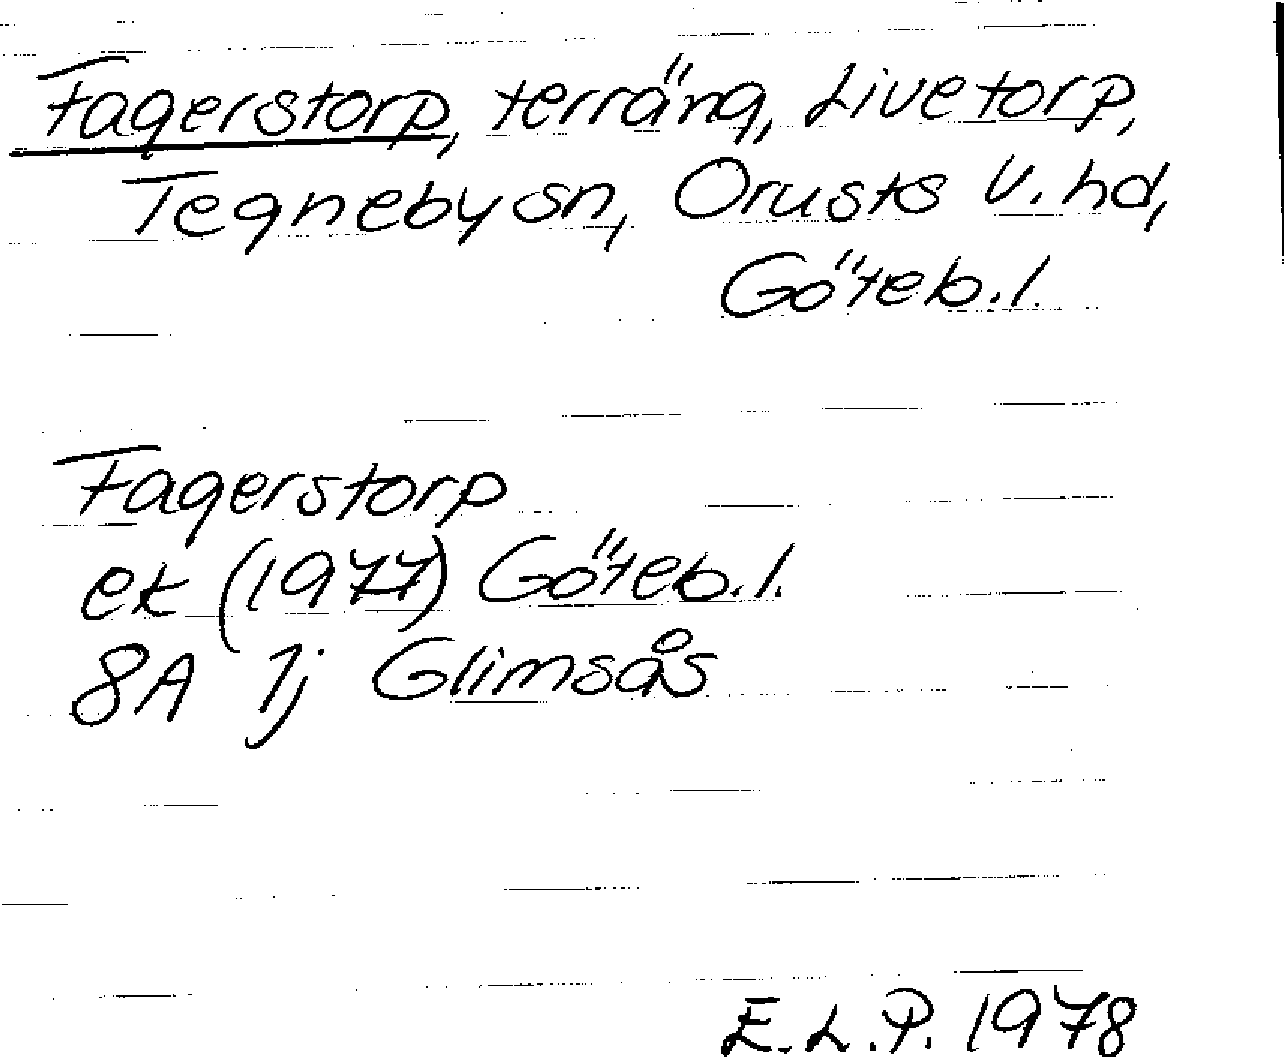 Fagerstorp, terräng, Livetorp,
Tegneby sn, Orusts V. hd,
Göteb. l.
Fagerstorp
ek (1977) Göteb. l.
8A 1j Glimsås
E.L.P. 1978